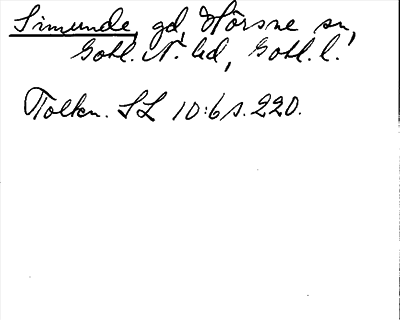 Simunde, gd, Hörsne sn,
Gotl. N. hd, Gotl. l.
Tolkn. SL 10:6 s. 220.